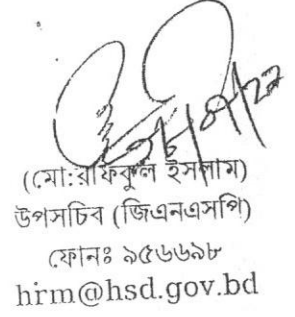 (মো:রফিকুল ইসলাম)
উপসচিব (জিএনএসপি)
ফোনঃ ৯৫৬৬৯৮
hrm@hsd.gov.bd